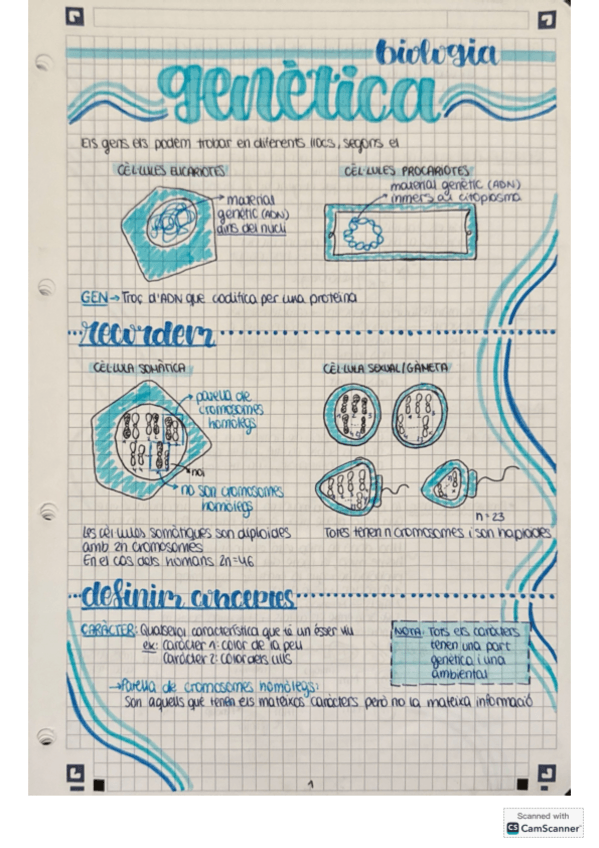 biologia
genètica
Els gens els podem trobar en diferents llocs, segons el
CÈL·LULES EUCARIOTES
CÈL·LULES PROCARIOTES
→ material
genètic (ADN)
dins del nucli
material genètic (ADN)
inmers al citoplasma
GEN → Troç d'ADN que codifica per una proteïna
recordem
CÈL·LULA SOMÀTICA
CÈL·LULA SEXUAL/GÀMETA
parella de
cromosomes
homòlegs
no!
no són cromosomes
homòlegs
n=23
Les cèl·lules somàtiques son diploides
amb 2n cromosomes
En el cas dels humans 2n=46
Totes tenen n cromosomes i son haploides
definim conceptes
CARÀCTER: Qualsevol característica que té un ésser viu
ex: caràcter 1: color de la pell
caràcter 2: color dels ulls
NOTA: Tots els caràcters
tenen una part
genètica i una
ambiental
→ Parella de cromosomes homòlegs:
Son aquells que tenen els mateixos caràcters però no la mateixa informació
1
Scanned with
CS CamScanner